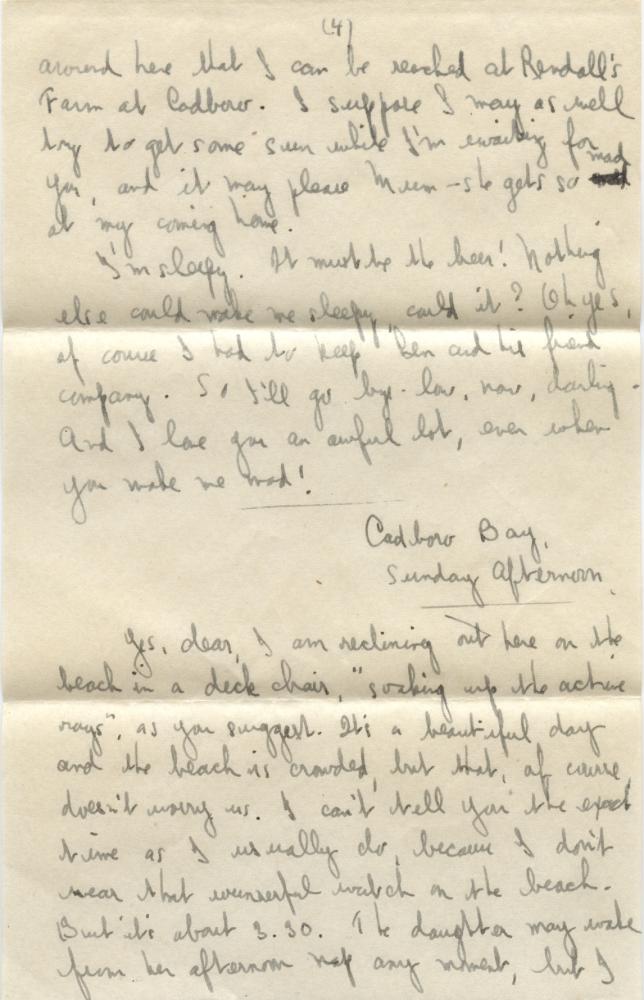 (4)
around here that I can be reached at Rendall's
Farm at Cadboro. I suppose I may as well
try to get some sun while I'm waiting for
you, and it may please Mum - she gets so mad
at my coming home.
I'm sleepy. It must be the beer! Nothing
else could make me sleepy, could it? Oh yes,
of course I had to keep Ben and his friend
company. So I'll go bye-low, now, darling.
And I love you an awful lot, even when
you make me mad!
Cadboro Bay,
Sunday Afternoon.
Yes, dear, I am reclining out here on the
beach in a deck chair, "soaking up the active
rays", as you suggest. It's a beautiful day
and the beach is crowded, but that, of course,
doesn't worry us. I can't tell you the exact
time as I usually do, because I don't
wear that wunnerful watch on the beach.
But it's about 3.30. The daughter may wake
from her afternoon nap any moment, but I